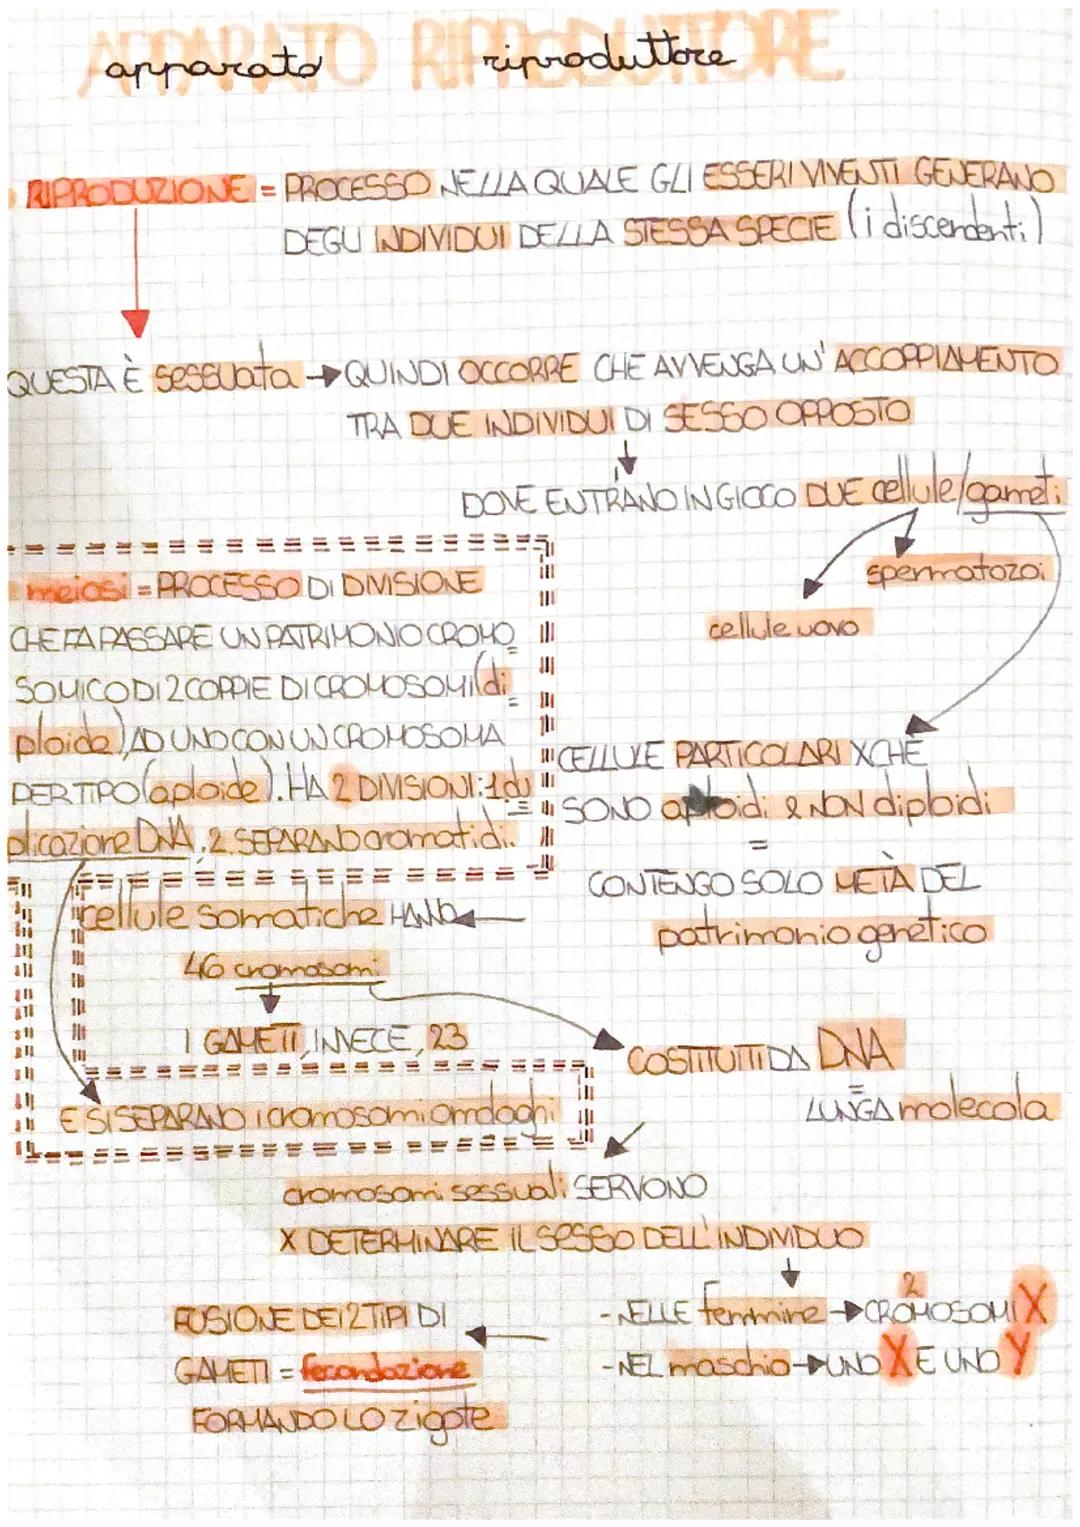 APPARATO RIPRODUTTORE
apparato riproduttore
RIPRODUZIONE = PROCESSO NELLA QUALE GLI ESSERI VIVENTI GENERANO
DEGLI INDIVIDUI DELLA STESSA SPECIE (i discendenti)
QUESTA È sessuata → QUINDI OCCORRE CHE AVVENGA UN' ACCOPPIAMENTO
TRA DUE INDIVIDUI DI SESSO OPPOSTO
DOVE ENTRANO IN GIOCO DUE cellule/gameti
spermatozoi
cellule uovo
meiosi = PROCESSO DI DIVISIONE
CHE FA PASSARE UN PATRIMONIO CROMO
SOMICO DI 2 COPPIE DI CROMOSOMI (di
ploide), AD UNO CON UN CROMOSOMA
PER TIPO (aploide). HA 2 DIVISIONI: 1 du
plicazione DNA, 2. SEPARANO cromatidi.
E SI SEPARANO i cromosomi omologhi
CELLULE PARTICOLARI XCHÈ
SONO aploidi e NON diploidi
=
CONTENGO SOLO METÀ DEL
patrimonio genetico
cellule somatiche HANNO
46 cromosomi
I GAMETI, INVECE, 23
COSTITUITI DA DNA
=
LUNGA molecola
cromosomi sessuali SERVONO
X DETERMINARE IL SESSO DELL'INDIVIDUO
- NELLE femmine → 2 CROMOSOMI X
- NEL maschio → UNO X E UNO Y
FUSIONE DEI 2 TIPI DI
GAMETI = fecondazione
FORMANDO LO zigote